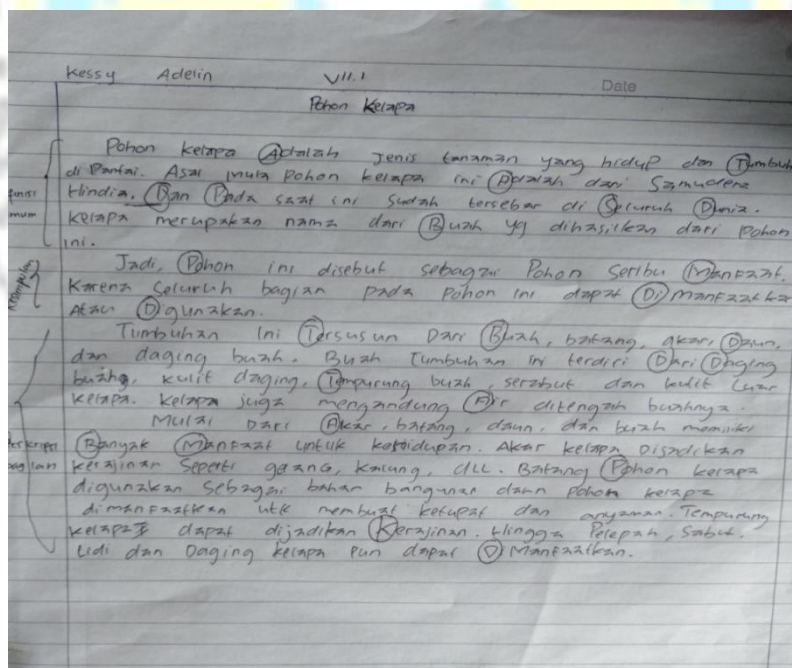 Kessy Adelin VII.1
Date
Pohon Kelapa
Pohon kelapa Adalah jenis tanaman yang hidup dan Tumbuh
di Pantai. Asal mula pohon kelapa ini Adalah dari Samudera
Hindia. Dan Pada saat ini sudah tersebar di Seluruh Dunia.
kelapa merupakan nama dari Buah yg dihasilkan dari Pohon
ini.
Jadi, Pohon ini disebut sebagai Pohon Seribu Manfaat.
Karena seluruh bagian pada Pohon ini dapat DiManfaatkan
Atau Digunakan.
Tumbuhan ini Tersusun Dari Buah, batang, akar, Daun,
dan daging buah. Buah Tumbuhan ini terdiri Dari Daging
buah, kulit daging, Tempurung buah, serabut dan kulit Luar
kelapa. kelapa juga mengandung Air ditengah buahnya.
Mulai Dari Akar, batang, daun, dan buah memiliki
Banyak Manfaat untuk kehidupan. Akar kelapa Disadikan
kerajinan Seperti gelang, kalung, dLL. Batang Pohon kelapa
digunakan Sebagai bahan bangunan daun pohon kelapa
dimanfaatkan utk membuat ketupat dan anyaman. Tempurung
kelapa dapat dijadikan Kerajinan. Hingga Pelepah, Sabut.
Lidi dan Daging kelapa Pun dapat DManfaatkan.
finisi
mum
kesimpulan
eskripsi
bagian